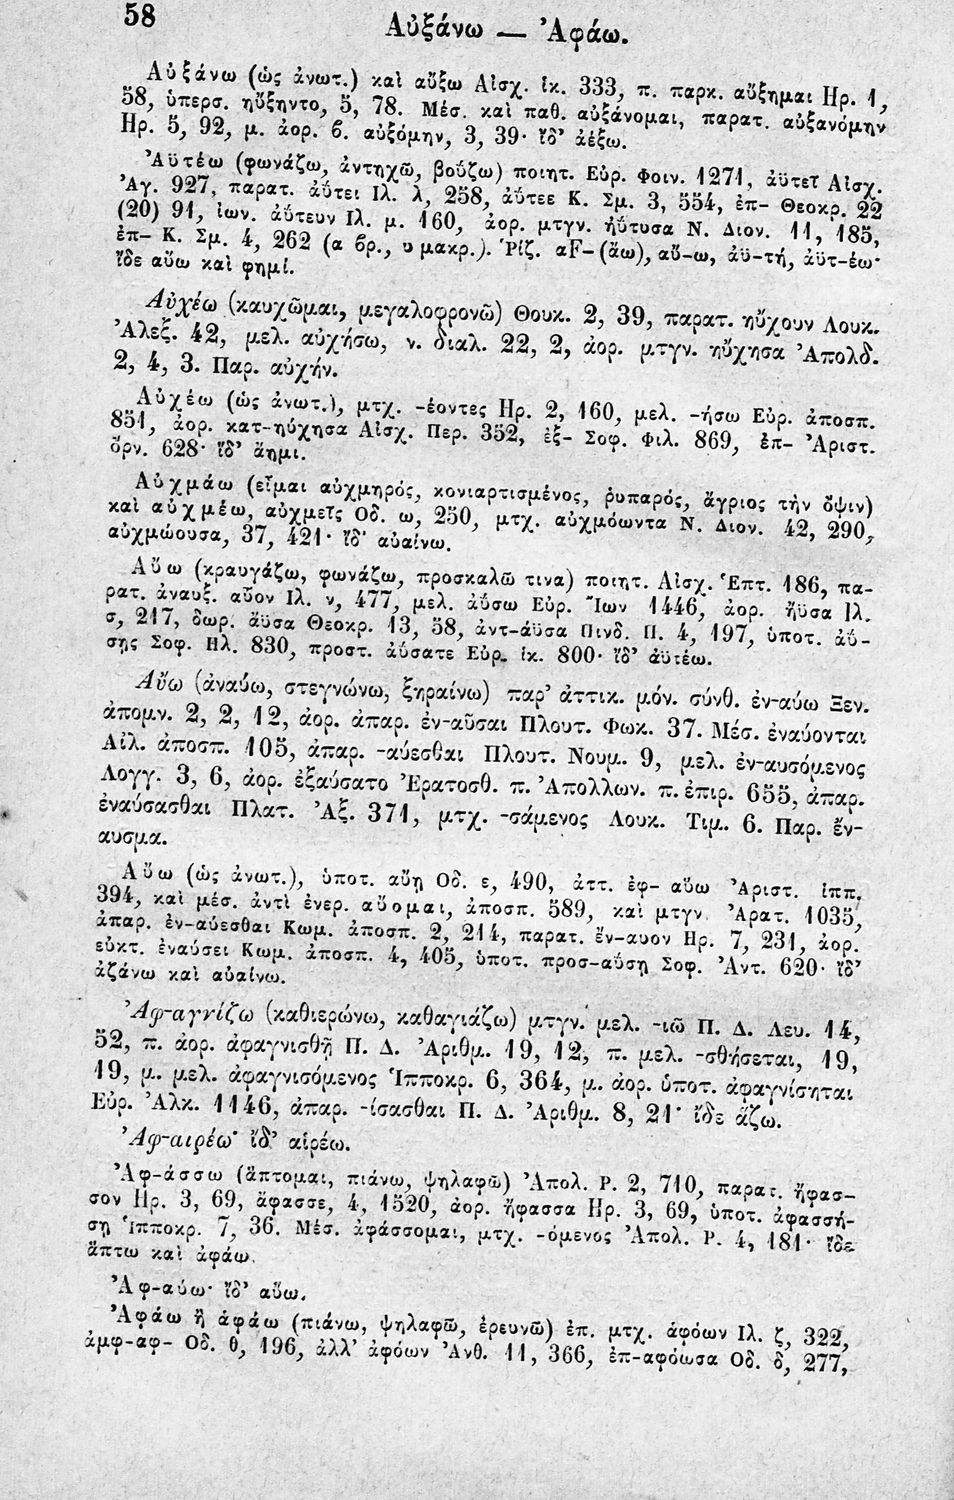 58
Αὐξάνω — Ἀφάω.
Αὐξάνω (ὡς ἀνωτ.) καὶ αὔξω Αἰσχ. ἱκ. 333, π. παρκ. αὔξημαι Ἡρ. 1,
58, ὑπερσ. ηὔξηντο, 5, 78. Μέσ. καὶ παθ. αὐξάνομαι, παρατ. αὐξανόμην
Ἡρ. 5, 92, μ. ἀορ. ϐ. αὐξόμην, 3, 39· ἴδ' ἀέξω.
Ἀϋτέω (φωνάζω, ἀντηχῶ, βοΰζω) ποιητ. Εὐρ. Φοιν. 1271, ἀϋτεῖ Αἰσχ.
Ἀγ. 927, παρατ. ἀΰτει Ἰλ. λ, 258, ἀΰτεε Κ. Σμ. 3, 554, ἐπ- Θεοκρ. 22
(20) 91, ἰων. ἀΰτευν Ἰλ. μ. 160, ἀορ. μτγν. ἠΰτυσα Ν. Διον. 11, 185,
ἐπ- Κ. Σμ. 4, 262 (α ϐρ., υ μακρ.). Ῥίζ. αF- (ἄω), αὔ-ω, ἀϋ-τή, ἀϋτ-έω·
ἴδε αὔω καὶ φημί.
Αὐχέω (καυχῶμαι, μεγαλοφρονῶ) Θουκ. 2, 39, παρατ. ηὔχουν Λουκ.
Ἀλεξ. 42, μελ. αὐχήσω, ν. διαλ. 22, 2, ἀορ. μτγν. ηὔχησα Ἀπολδ.
2, 4, 3. Παρ. αὐχήν.
Αὐχέω (ὡς ἀνωτ.), μτχ. -έοντες Ἡρ. 2, 160, μελ. -ήσω Εὐρ. ἀποσπ.
851, ἀορ. κατ-ηύχησα Αἰσχ. Περ. 352, ἐξ- Σοφ. Φιλ. 869, ἐπ- Ἀριστ.
ὄρν. 628· ἴδ' ἄημι.
Αὐχμάω (εἶμαι αὐχμηρός, κονιαρτισμένος, ῥυπαρός, ἄγριος τὴν ὄψιν)
καὶ αὐχμέω, αὐχμεῖς Ὀδ. ω, 250, μτχ. αὐχμόωντα Ν. Διον. 42, 290,
αὐχμώουσα, 37, 421· ἴδ' αὐαίνω.
Αὔω (κραυγάζω, φωνάζω, προσκαλῶ τινα) ποιητ. Αἰσχ. Ἑπτ. 186, πα-
ρατ. ἀναυξ. αὖον Ἰλ. ν, 477, μελ. ἀΰσω Εὐρ. Ἴων 1446, ἀορ. ἤϋσα Ἰλ.
σ, 217, δωρ. ἄϋσα Θεοκρ. 13, 58, ἀντ-άϋσα Πινδ. Π. 4, 197, ὑποτ. ἀΰ-
σῃς Σοφ. Ἠλ. 830, προστ. ἀΰσατε Εὐρ. ἱκ. 800· ἴδ' ἀϋτέω.
Αὔω (ἀναύω, στεγνώνω, ξηραίνω) παρ' ἀττικ. μόν. σύνθ. ἐν-αύω Ξεν.
ἀπομν. 2, 2, 12, ἀορ. ἀπαρ. ἐν-αῦσαι Πλουτ. Φωκ. 37. Μέσ. ἐναύονται
Αἰλ. ἀποσπ. 105, ἀπαρ. -αύεσθαι Πλουτ. Νουμ. 9, μελ. ἐν-αυσόμενος
Λογγ. 3, 6, ἀορ. ἐξαύσατο Ἐρατοσθ. π. Ἀπολλων. π. ἐπιρ. 655, ἀπαρ.
ἐναύσασθαι Πλατ. Ἀξ. 371, μτχ. -σάμενος Λουκ. Τιμ. 6. Παρ. ἔν-
αυσμα.
Αὔω (ὡς ἀνωτ.), ὑποτ. αὔῃ Ὀδ. ε, 490, ἀττ. ἐφ- αὕω Ἀριστ. ἱππ.
394, καὶ μέσ. ἀντὶ ἐνερ. αὔομαι, ἀποσπ. 589, καὶ μτγν. Ἀρατ. 1035,
ἀπαρ. ἐν-αύεσθαι Κωμ. ἀποσπ. 2, 214, παρατ. ἔν-αυον Ἡρ. 7, 231, ἀορ.
εὐκτ. ἐναύσει Κωμ. ἀποσπ. 4, 405, ὑποτ. προσ-αύσῃ Σοφ. Ἀντ. 620· ἴδ'
ἀζάνω καὶ αὐαίνω.
Ἀφ-αγνίζω (καθιερώνω, καθαγιάζω) μτγν. μελ. -ιῶ Π. Δ. Λευ. 14,
52, π. ἀορ. ἀφαγνισθῇ Π. Δ. Ἀριθμ. 19, 12, π. μελ. -σθήσεται, 19,
19, μ. μελ. ἀφαγνισόμενος Ἱπποκρ. 6, 364, μ. ἀορ. ὑποτ. ἀφαγνίσηται
Εὐρ. Ἀλκ. 1146, ἀπαρ. -ίσασθαι Π. Δ. Ἀριθμ. 8, 21· ἴδε ἅζω.
Ἀφ-αιρέω· ἴδ' αἱρέω.
Ἀφ-άσσω (ἅπτομαι, πιάνω, ψηλαφῶ) Ἀπολ. Ρ. 2, 710, παρατ. ἤφασ-
σον Ἡρ. 3, 69, ἄφασσε, 4, 1520, ἀορ. ἤφασσα Ἡρ. 3, 69, ὑποτ. ἀφασσή-
σῃ Ἱπποκρ. 7, 36. Μέσ. ἀφάσσομαι, μτχ. -όμενος Ἀπολ. Ρ. 4, 181· ἴδε
ἅπτω καὶ ἀφάω.
Ἀφ-αύω· ἴδ' αὔω.
Ἀφάω ἢ ἁφάω (πιάνω, ψηλαφῶ, ἐρευνῶ) ἐπ. μτχ. ἁφόων Ἰλ. ζ, 322,
ἀμφ-αφ- Ὀδ. θ, 196, ἀλλ' ἀφόων Ἀνθ. 11, 366, ἐπ-αφόωσα Ὀδ. δ, 277,